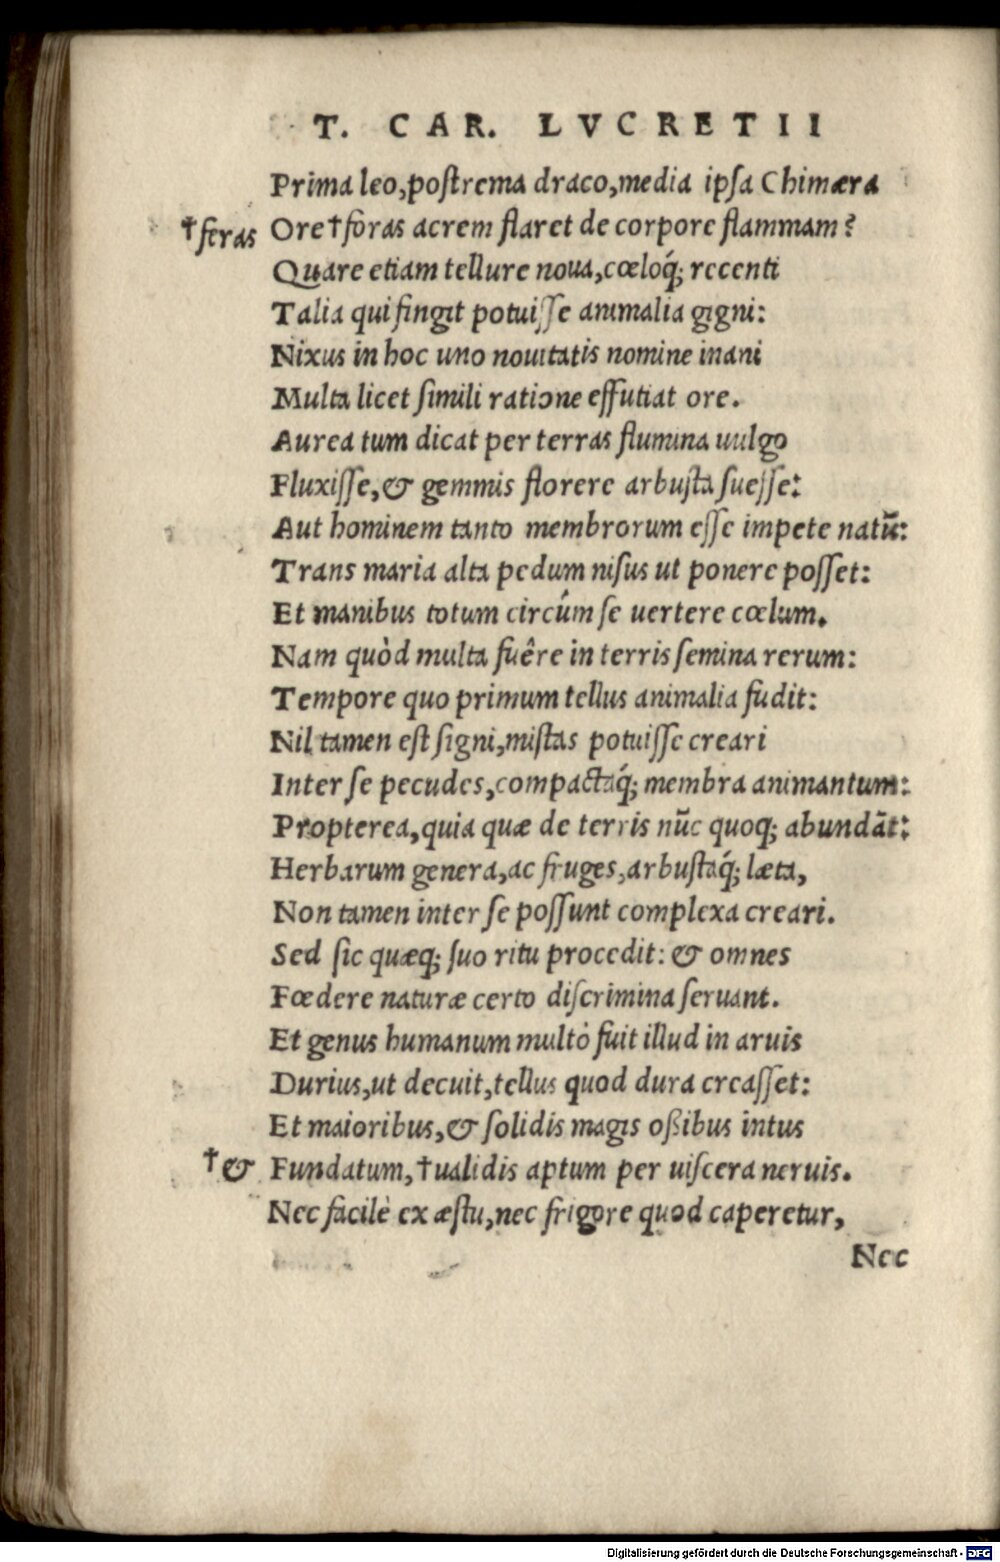 T. CAR. LVCRETII
Prima leo,postrema draco,media ipsa Chimæra
†feras Ore†foras acrem flaret de corpore flammam?
Quare etiam tellure noua,cœloq́; recenti
Talia qui fingit potuisse animalia gigni:
Nixus in hoc uno nouitatis nomine inani
Multa licet simili ratione effutiat ore.
Aurea tum dicat per terras flumina uulgo
Fluxisse,& gemmis florere arbusta suesse:
Aut hominem tanto membrorum esse impete natũ:
Trans maria alta pedum nisus ut ponere posset:
Et manibus totum circúm se uertere cœlum.
Nam quòd multa fuêre in terris semina rerum:
Tempore quo primum tellus animalia fudit:
Nil tamen est signi,mistas potuisse creari
Inter se pecudes,compactaq́; membra animantum:
Propterea,quia quæ de terris nũc quoq; abundãt:
Herbarum genera,ac fruges,arbustaq́; læta,
Non tamen inter se possunt complexa creari.
Sed sic quæq; suo ritu procedit: & omnes
Fœdere naturæ certo discrimina seruant.
Et genus humanum multò fuit illud in aruis
Durius,ut decuit,tellus quod dura creasset:
Et maioribus,& solidis magis oßibus intus
†& Fundatum,†ualidis aptum per uiscera neruis.
Nec facilè ex æstu,nec frigore quod caperetur,
Nec
Digitalisierung gefördert durch die Deutsche Forschungsgemeinschaft - DFG